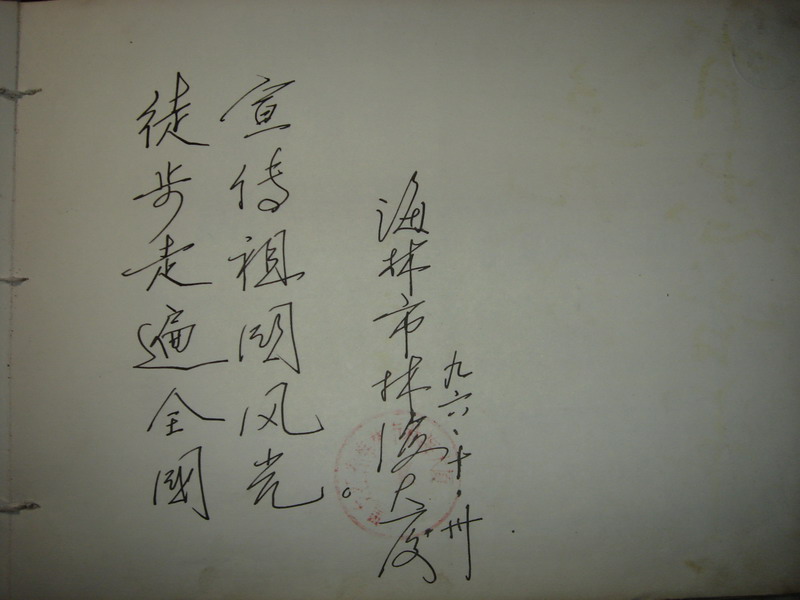 徒步走遍全國
宣传祖國风光。
海林市林大厦
九六.十.卅.